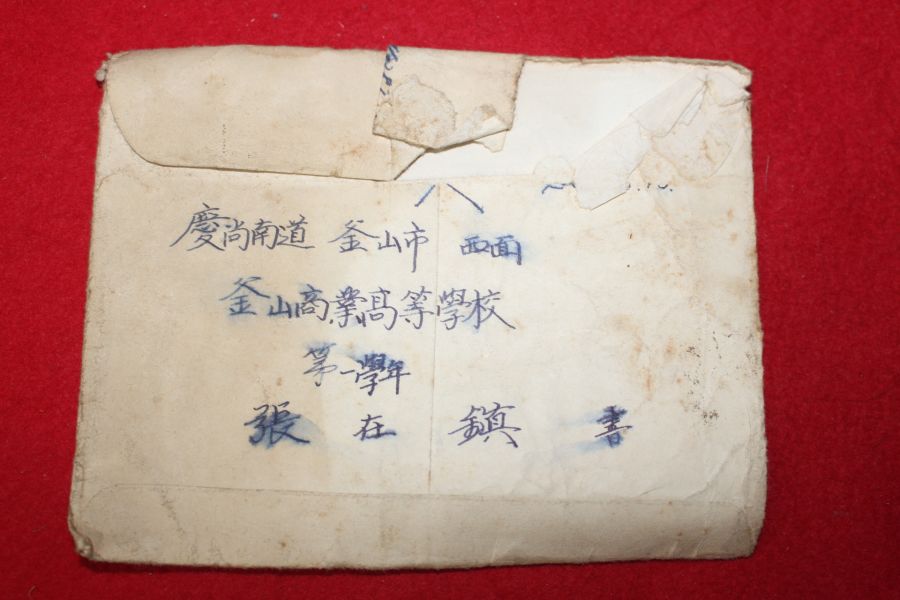 慶尚南道 釜山市 西面
釜山商業高等學校
第一學年
張 在 鎮 書